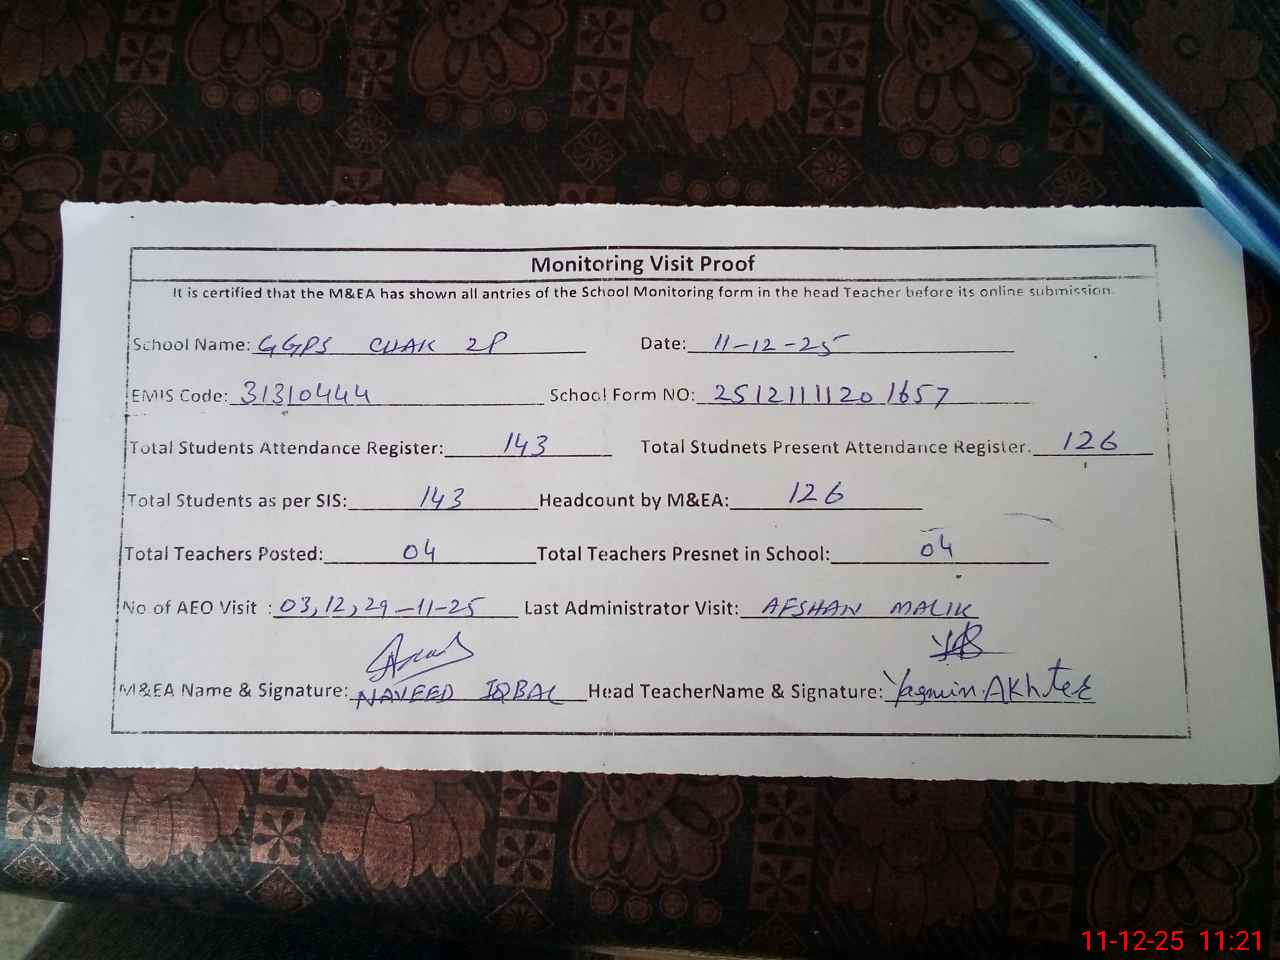 Monitoring Visit Proof
It is certified that the M&EA has shown all antries of the School Monitoring form in the head Teacher before its online submission.
School Name: GGPS CHAK 2P Date: 11-12-25
EMIS Code: 31310444 School Form NO: 2512111120 1657
Total Students Attendance Register: 143 Total Studnets Present Attendance Register. 126
Total Students as per SIS: 143 Headcount by M&EA: 126
Total Teachers Posted: 04 Total Teachers Presnet in School: 04
No of AEO Visit : 03,12,29-11-25 Last Administrator Visit: AFSHAN MALIK
M&EA Name & Signature: NAVEED IQBAL Head TeacherName & Signature: Yasmin Akhter
11-12-25 11:21